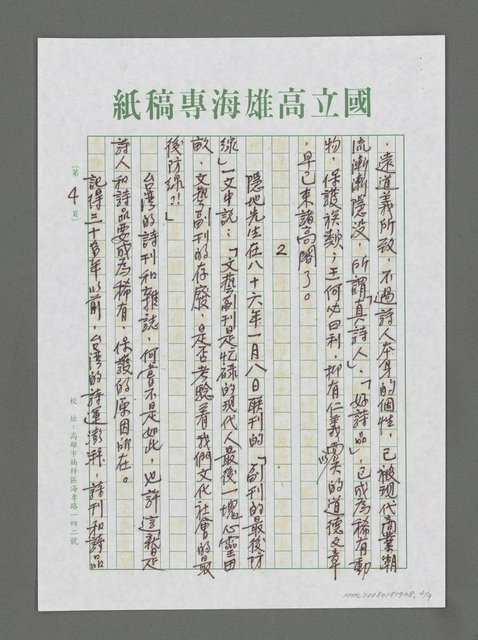 國立高雄海專稿紙
，違道義所致，不過詩人本身的個性，已被現代商業潮
流漸漸隱沒，所謂「真詩人」、「好詩品」，已成為稀有動
物，保護族類；王何必曰利，抑有仁義而已矣的道德文章
，早已束諸高閣了。
2
隱地先生在八十六年一月八日聯刊的「副刊的最後防
線」一文中說：「文藝副刊是忙碌的現代人最後一塊心靈田
畝，文藝副刊的存廢，是否考驗著我們文化社會的最
後防線？！」
台灣的詩刊和雜誌，何嘗不是如此，也許這就是
詩人和詩品要成為稀有，保護的原因所在。
記得二十多年以前，台灣的詩運澎湃，詩刊和詩品
（第4頁）
校址：高雄市楠梓區海專路一四二號
NMTL20080181938, 4/9